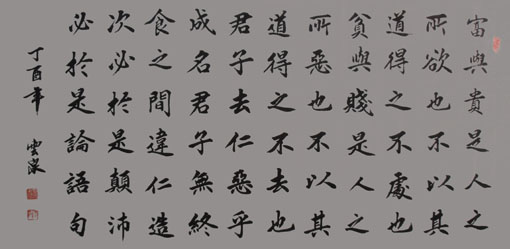 富與貴是人之
所欲也不以其
道得之不處也
貧與賤是人之
所惡也不以其
道得之不去也
君子去仁惡乎
成名君子無終
食之間違仁造
次必於是顛沛
必於是論語句
丁酉年 雲深